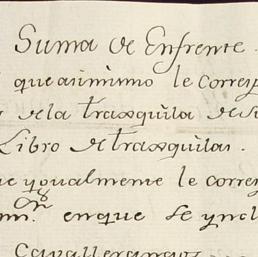 Suma de Enfrente.
que asimismo le corresp
de la traxquila de su
Libro de traxquilas.
ue ygualmente le corres
enque se yncl
Cavallerangos